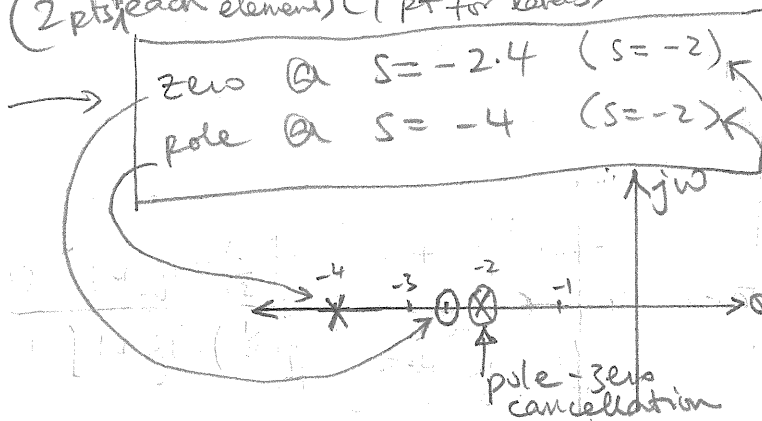 (2 pts, each element) (1 pt for
zero @ s = -2.4 (s = -2)
pole @ s = -4 (s = -2)
jω
-4 -3 -2 -1
σ
pole-zero
cancellation